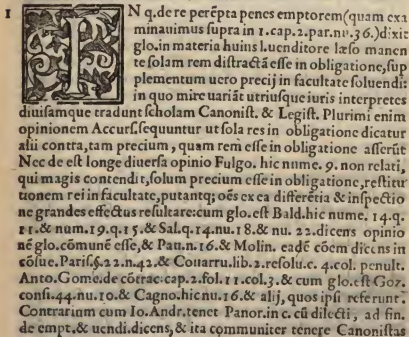 1 IN q. de re perẽpta penes emptorem (quam exa
minauimus supra in 1.cap.2.par.nu.36.) dixit
glo. in materia huius l. uenditore læso manen
te solam rem distractã esse in obligatione, sup
plementum uero precij in facultate soluendi:
in quo mire uariãt utriusque iuris interpretes
diuisamque tradunt scholam Canonist. & Legist. Plurimi enim
opinionem Accurs. sequuntur ut sola res in obligatione dicatur
alii contra, tam precium, quam rem esse in obligatione asserũt
Nec de est longe diuersa opinio Fulgo. hic nume. 9. non relati,
qui magis contendit, solum precium esse in obligatione, restitu
tionem rei in facultate, putantq; oẽs ex ea differẽtia & inspectio
ne grandes effectus resultare: cum glo. est Bald. hic nume. 14. q.
11. & num. 19. q. 15. & Sal. q. 14. nu. 18. & nu. 22. dicens opinio
nẽ glo. comunẽ esse, & Pau. n. 16. & Molin. eadẽ cõem dicẽs in
cõsue. Paris. §. 22. n. 42. & Couarru. lib. 2. resolu. c. 4. col. penult.
Anto. Gome. de cõtrac. cap. 2. fol. 11. col. 3. & cum glo. est Goz.
consi. 44. nu. 10. & Cagno. hic nu. 16. & alij, quos ipsi referunt.
Contrarium cum Io. Andr. tenet Panor. in c. cũ dilecti, ad fin.
de empt. & uendi. dicens, & ita communiter tenere Canonistas